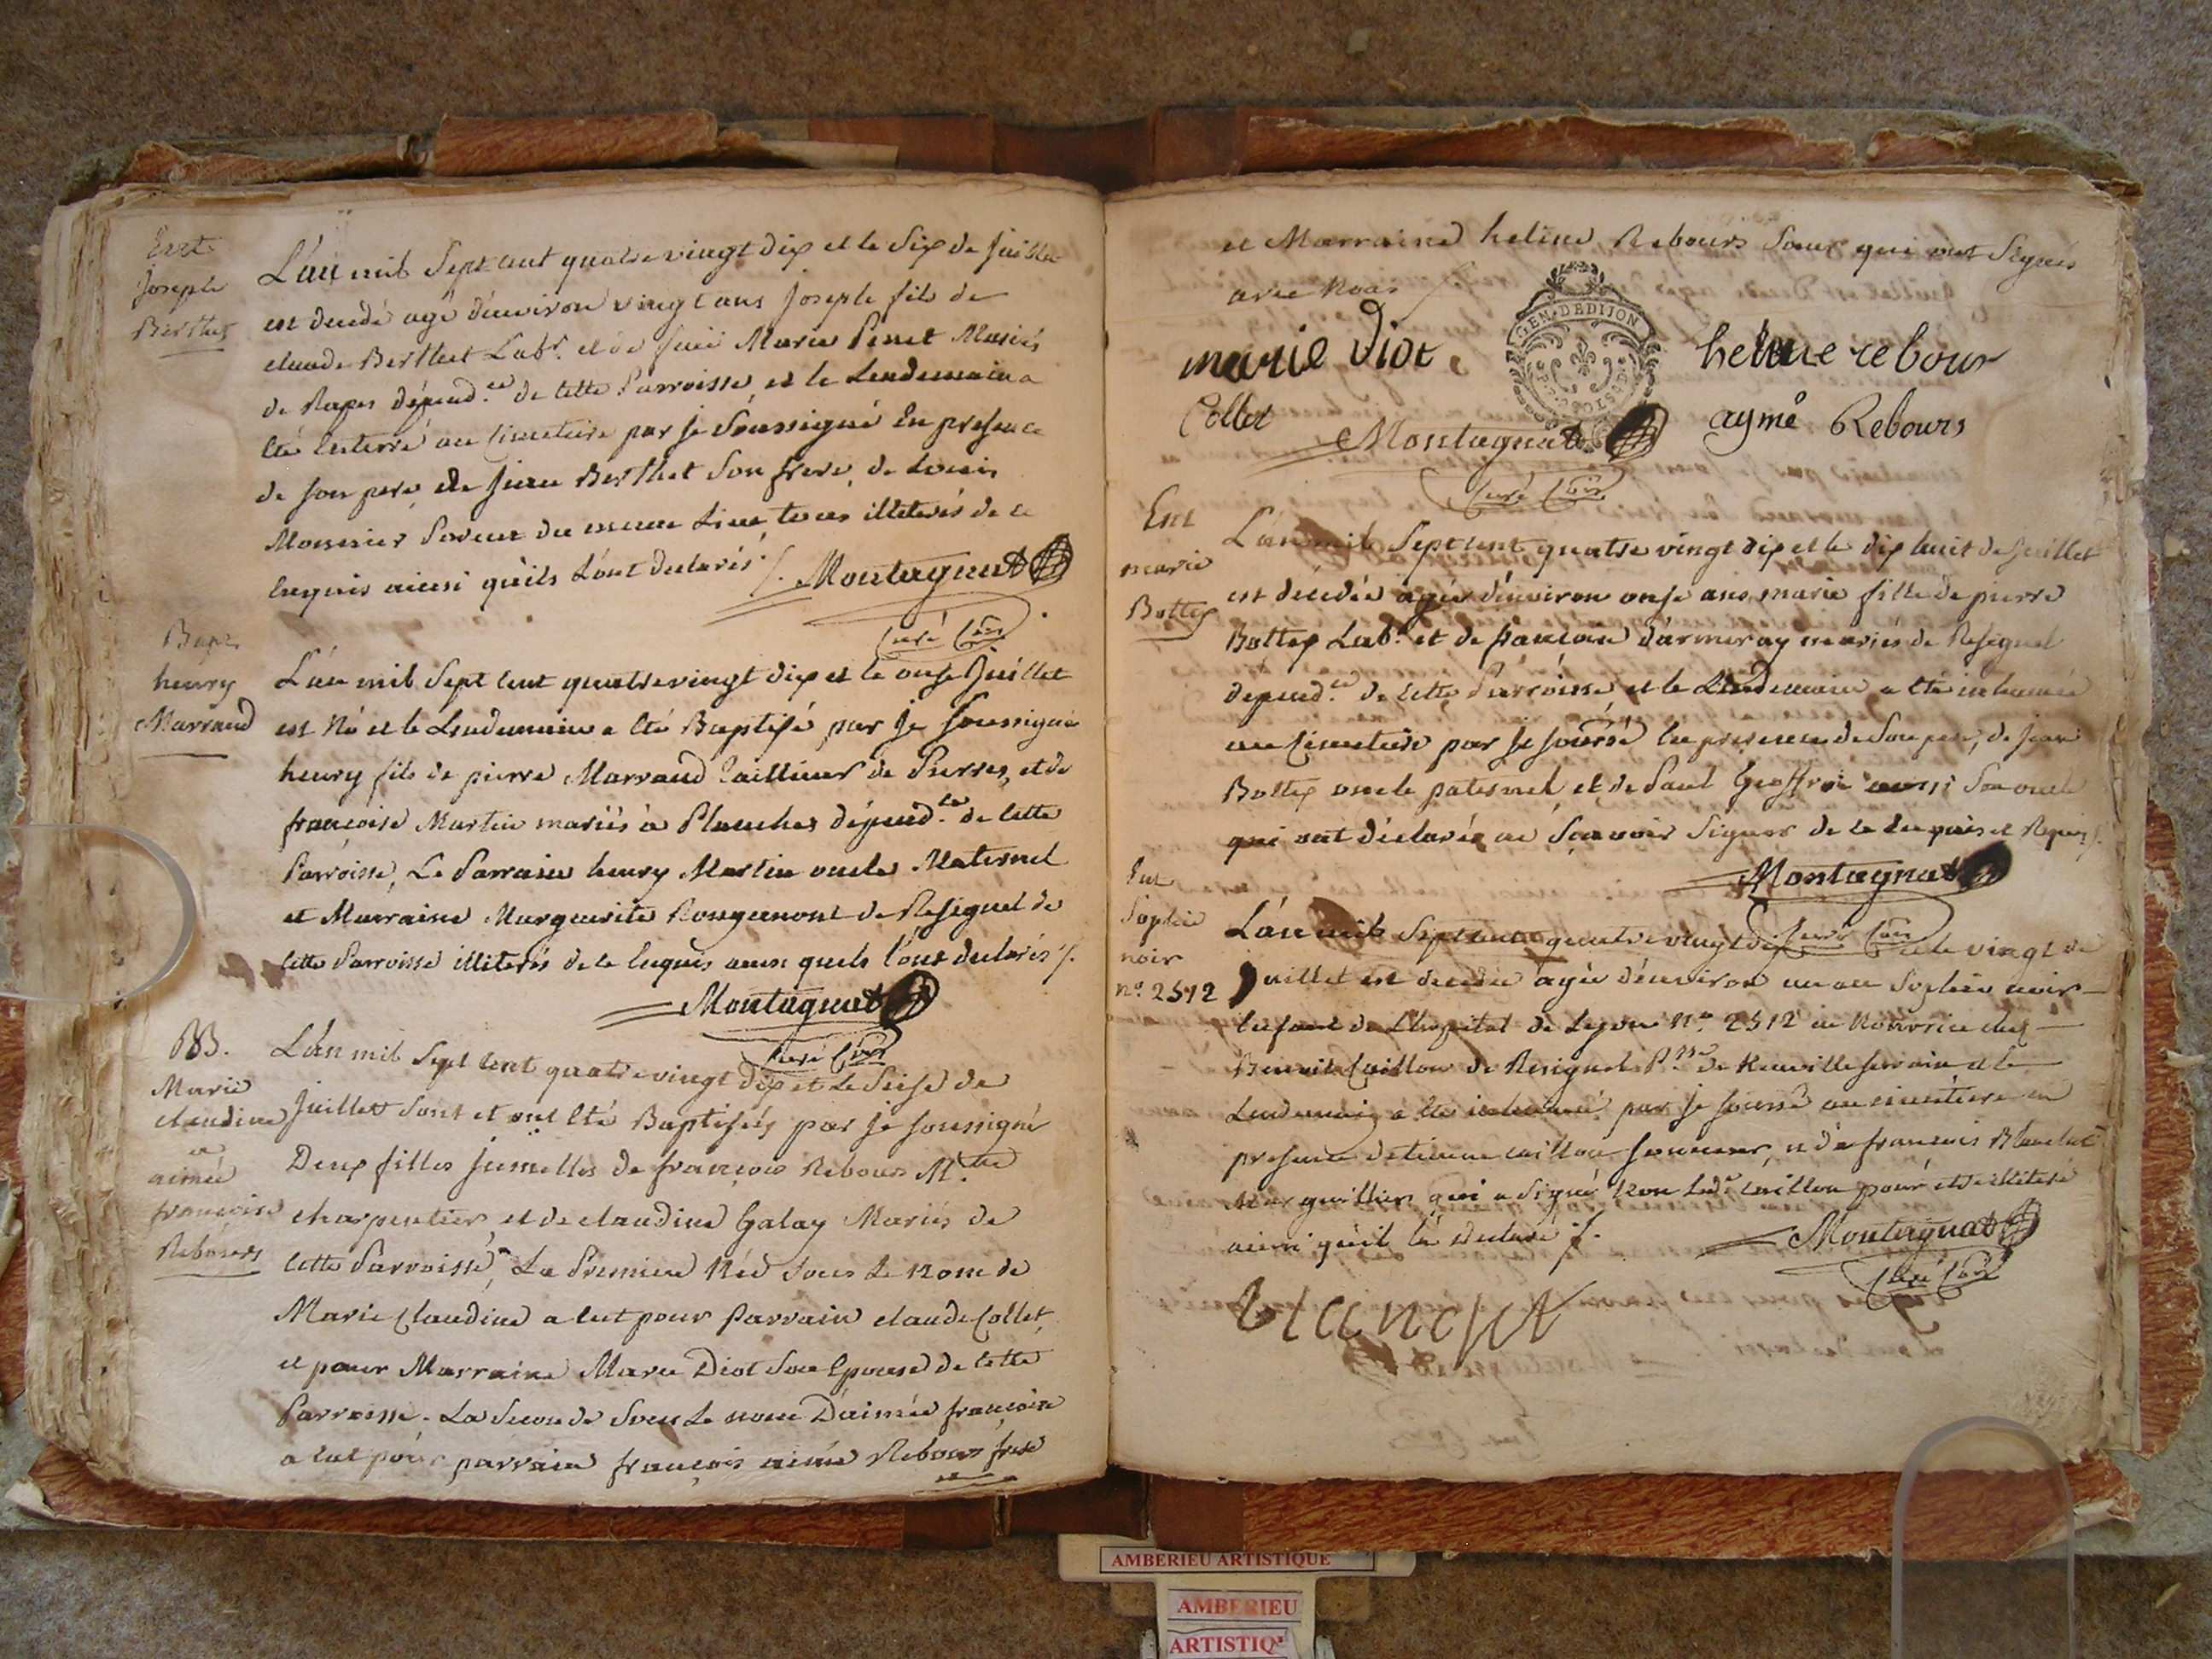 Ent
Joseph
Berthet
L'an mil Sept cent quatre vingt dix et le Six de Juillet
est decedé agé d'environ vingt ans Joseph fils de
claude Berthet Labr. et de Marie Penet Mariés
de dépend.ce de cette Parroisse, et le Lendemain a
été enterré au Cimetiere par Je Soussigné En presence
de son pere, de Jean Berthet Son frere, de Louis
Monnier Parent du meme Lieu tous illeterés de ce
enquis ainsi qu'ils L'ont declarés /. Montagnat
Curé
Bapt
henry
Marraud
L'an mil Sept cent quatre vingt dix et le onse Juillet
est Né et le Lendemain a été Baptisé par Je Soussigné
henry fils de pierre Marraud tailleur de Pierres, et de
francoise Martin mariés à Planches dépend.ce de cette
Parroisse, Le Parrain henry Martin oncle Maternel
et Marraine Marguerite Rougemont de Resignel de
cette Parroisse illiterés de ce enquis ainsi quils L'ont declarés /.
Montagnat
Curé
BB.
Marie
claudine
et
aimée
francoise
Rebours
L'an mil Sept cent quatre vingt dix et le Seise de
Juillet sont et ont été Baptisées par Je soussigné
Deux filles Jumelles de françois Rebours M.tre
charpentier, et de claudine Galay Mariés de
cette Parroisse, La Premiere Née Sous Le nom de
Marie Claudine a eut pour Parrain claude Collet,
et pour Marraine Marie Diot Son Epouse de cette
Parroisse. La Seconde Sous Le nom D'aimée francoise
a eut pour parrain françois aimé Rebours frere
et Marraine heline Rebours Sœur qui ont Signés
avec Nous /
GEN. DE DIJON
marie Diot
heline rebour
Collet
aymé Rebours
Montagnat
Curé
Ent
marie
Bottex
L'an mil Sept cent quatre vingt dix et le dix huit de Juillet
est décédée agée d'environ onse ans marie fille de pierre
Bottex Lab.r et de francoise d'armeray mariés de Resignel
depend.ce de cette Parroisse, et le Lendemain a été inhumée
au Cimetiere par Je sousse en presence de Son pere, de Jean
Bottex oncle paternel, et de Paul Geoffroi aussi Son oncle
qui ont déclarés ne Sçavoir Signer de ce enquis et Requis /.
Montagnat
Curé
Ent
Sophie
noir
n.o 2512
L'an mil Sept cent quatre vingt dix et le vingt de
Juillet est decedée agée d'environ un an Sophie noir
Enfant de L'hopital de Lyon N.o 2512 en Nourrice chez
Benoit Caillon de Resignel P.sse de Neuville et le
Lendemain a été inhumé par Je soussé au cimetiere en
presence detienne caillon et de francois Blanchet
Marguillier qui a Signé Non Led.t Caillon pour etre illeteré
ainsi qu'il l'a declaré /.
Montagnat
Curé
blanchet
AMBERIEU ARTISTIQUE
AMBERIEU
ARTISTIQ